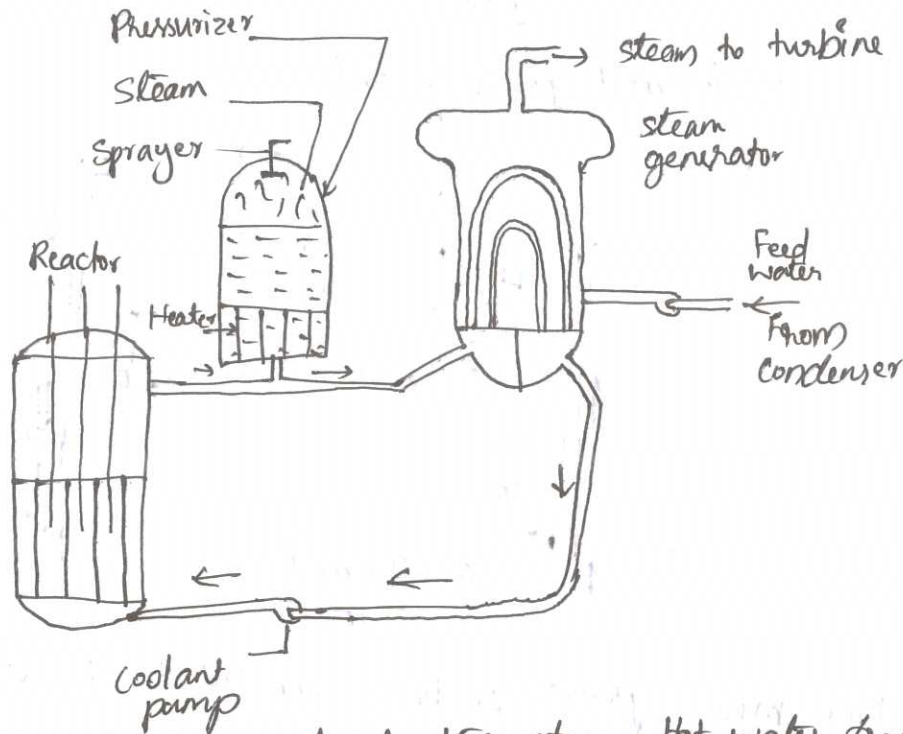 Pressurizer
Steam
Sprayer
steam to turbine
steam
generator
Reactor
Heater
Feed
water
From
condenser
coolant
pump
Hot water